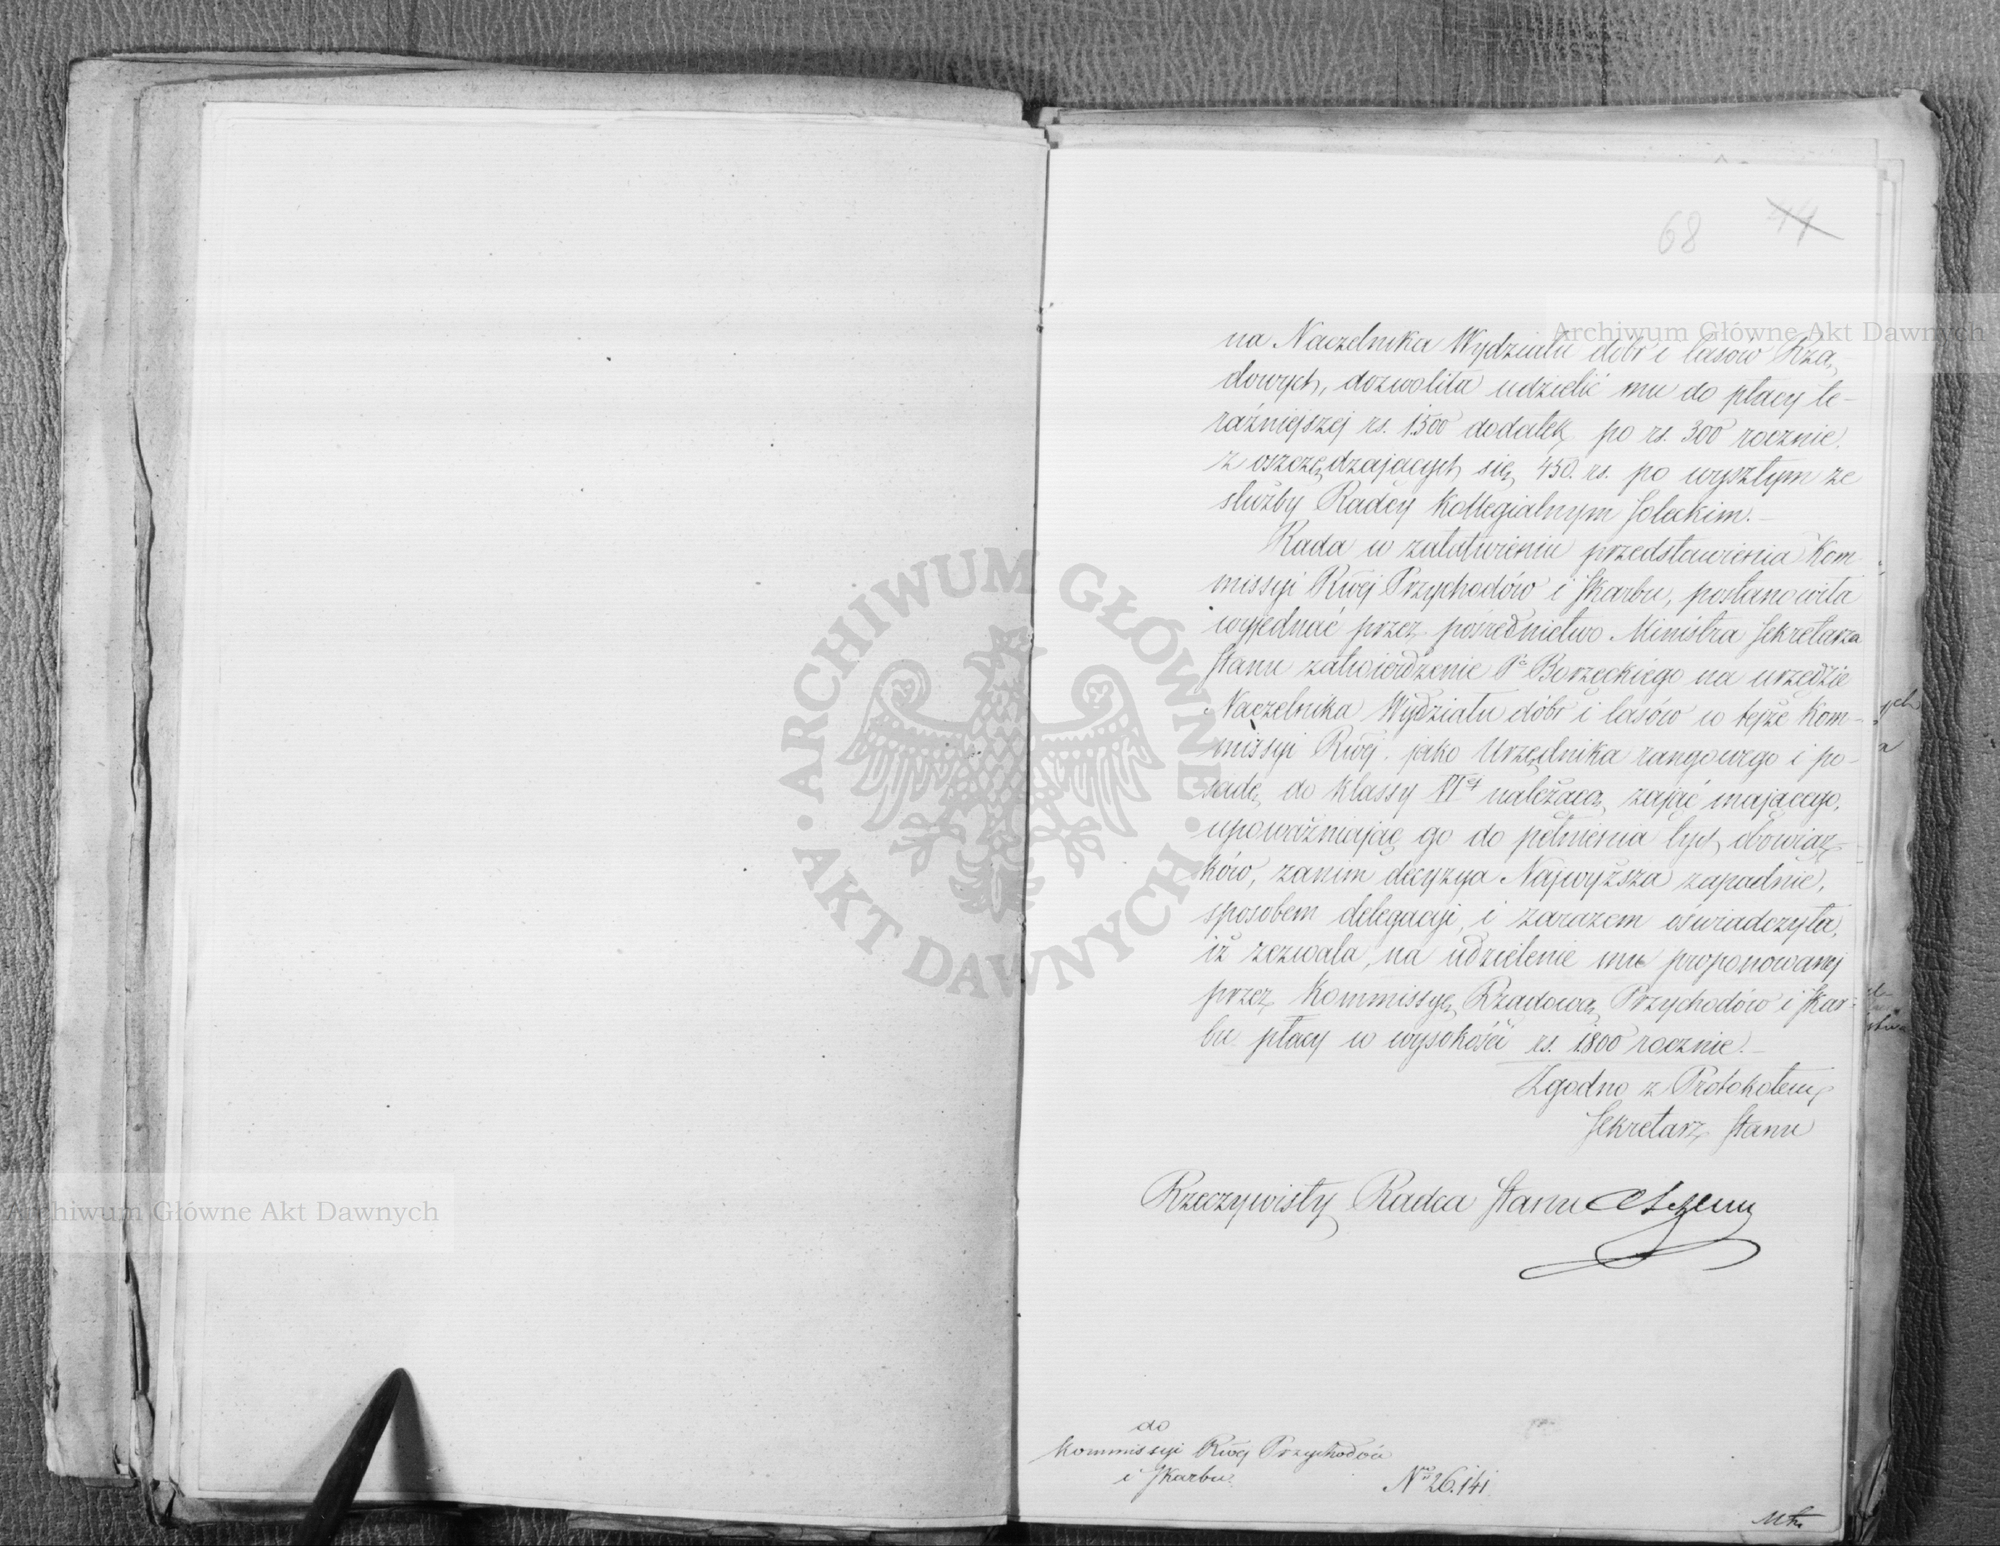 68 44
na Naczelnika Wydziału dóbr i lasów Rzą-
dowych, dozwoliła udzielić mu do płacy te-
raźniejszej rs. 1500 dodatek po rs. 300 rocznie.
z oszczędzających się 450. rs. po wyszłym ze
służby Radcy Kollegialnym Soleckim.-
Rada w załatwieniu przedstawienia Kom-
missyi Rwej Przychodów i Skarbu, postanowiła
wyjednać przez pośrednictwo Ministra Sekretarza
Stanu zatwierdzenie Pa Borzęckiego na urzędzie
Naczelnika Wydziału dóbr i lasów w tejże Kom-
missyi Rwej. jako Urzędnika rangowego i po-
sadę do klassy VIej należącą zająć mającego,
upoważniając go do pełnienia tych obowiąz-
ków, zanim decyzya Najwyższa zapadnie,
sposobem delegacyi, i zarazem oświadczyła,
iż zezwala, na udzielenie mu proponowanej
przez Kommissyę Rządową Przychodów i Skar-
bu płacy w wysokości rs. 1800 rocznie.-
Zgodno z Protokołem
Sekretarz Stanu
Rzeczywisty Radca Stanu
do
Kommissyi Rwej Przychodów
i Skarbu.
Nro 26.141.
Archiwum Główne Akt Dawnych
Archiwum Główne Akt Dawnych
ARCHIWUM GŁÓWNE AKT DAWNYCH